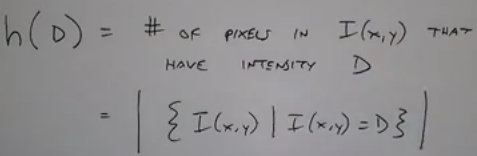 h(D) = # OF PIXELS IN I(x,y) THAT
HAVE INTENSITY D
= | { I(x,y) | I(x,y) = D } |